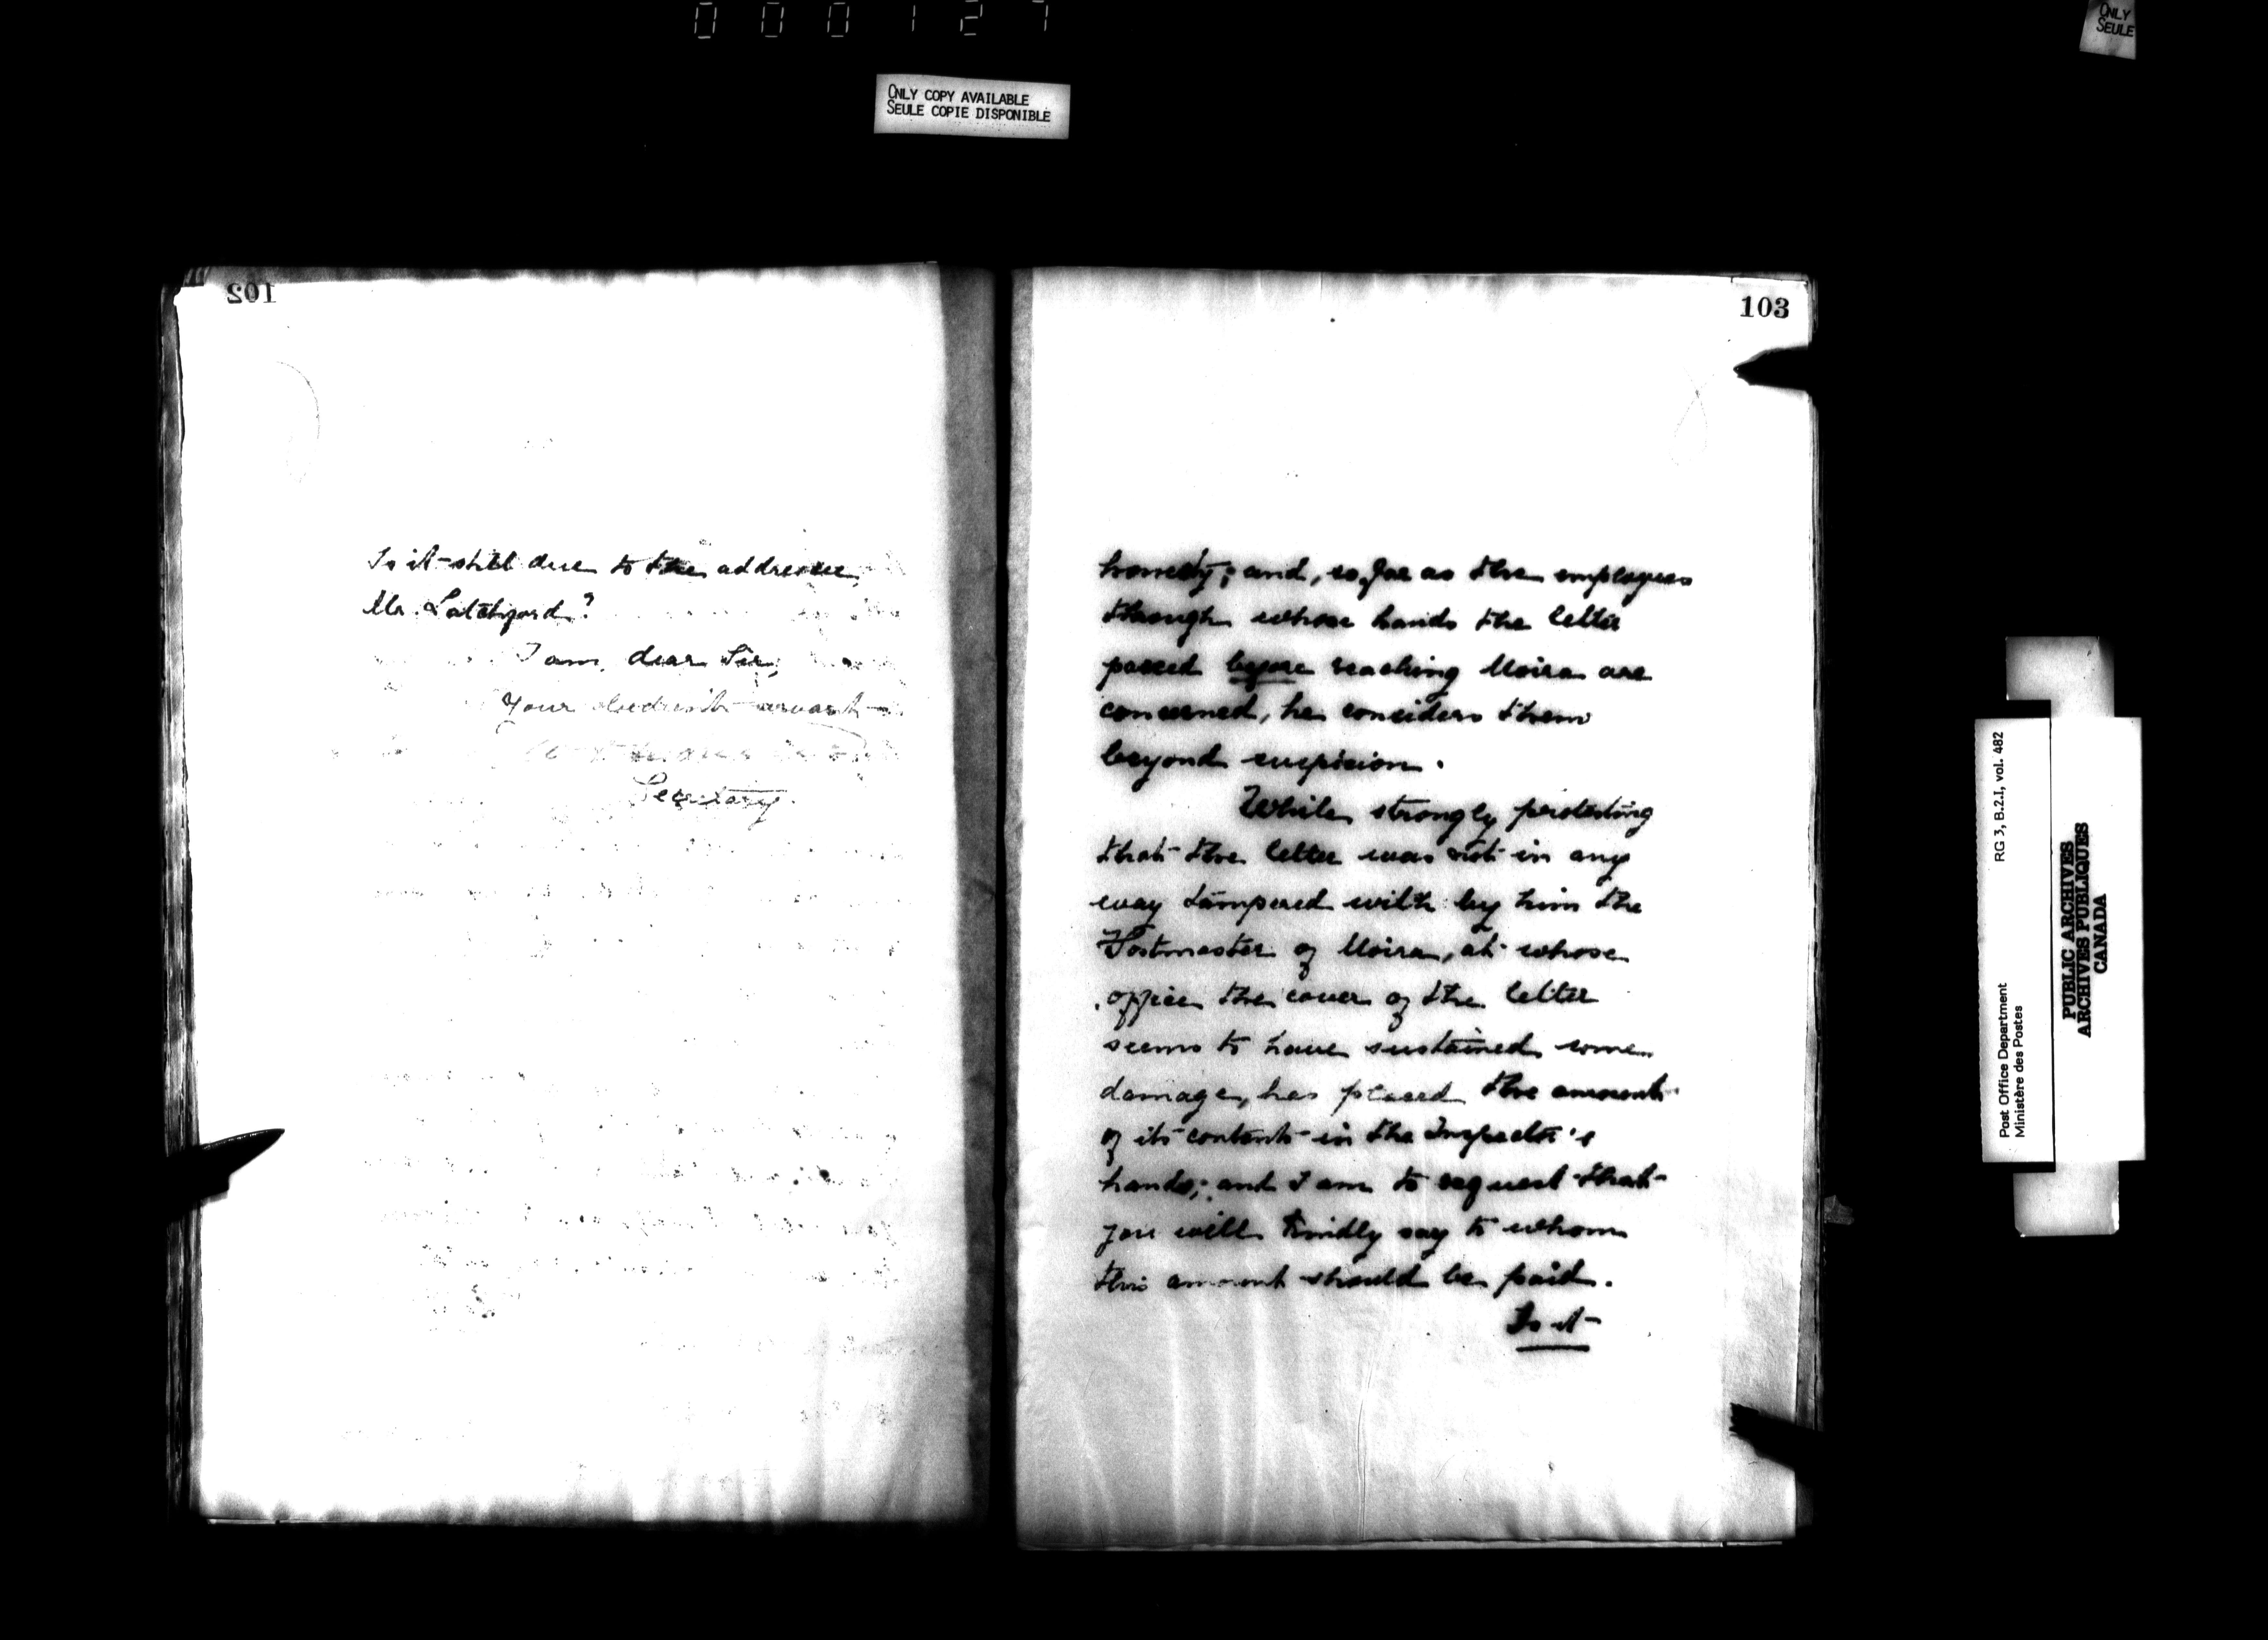 000127
ONLY COPY AVAILABLE
SEULE COPIE DISPONIBLE
ONLY
SEULE
102
Is it still due to the addressee,
Mr. Latchford?
I am, dear Sir,
Your obedient servant
Secretary.
103
honesty; and, so far as the employees
through whose hands the letter
passed before reaching Moira are
concerned, he considers them
beyond suspicion.
While strongly protesting
that the letter was not in any
way tampered with by him the
Postmaster of Moira, at whose
office the cover of the letter
seems to have sustained some
damage, has placed the amount
of its contents in the Inspector's
hands; and I am to request that
you will kindly say to whom
this amount should be paid.
Is it
Post Office Department
Ministère des Postes
RG 3, B.2.I, vol. 482
PUBLIC ARCHIVES
ARCHIVES PUBLIQUES
CANADA